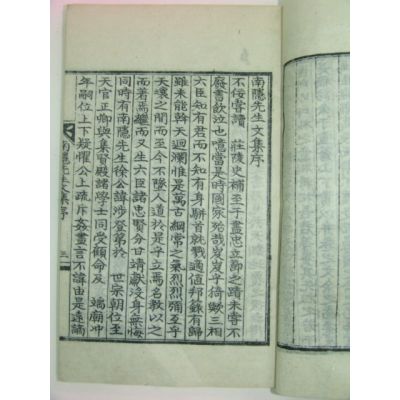 南隱先生文集序
不佞嘗讀 莊陵史補至于盡忠立節之蹟未嘗不
廢書飮泣也噫當是時國家殆哉岌岌乎徛歟三相
六臣知有君而不知有身騈首就戮適値邦籙有歸
雖未能斡天迴瀾惟是萬古綱常之氣烈烈彌亙乎
天壤之間而至今不墜人道於是乎立焉名敎以之
而著焉繼而又生六臣諸忠賢分甘靖獻沒身無悔
同時有南隱先生徐公諱涉登第於 世宗朝位至
天官正卿與集賢殿諸學士同受顧命及 端廟冲
年嗣位上下疑懼公上疏斥姦晝言不諱由是遠謫
南隱先生文集序 三